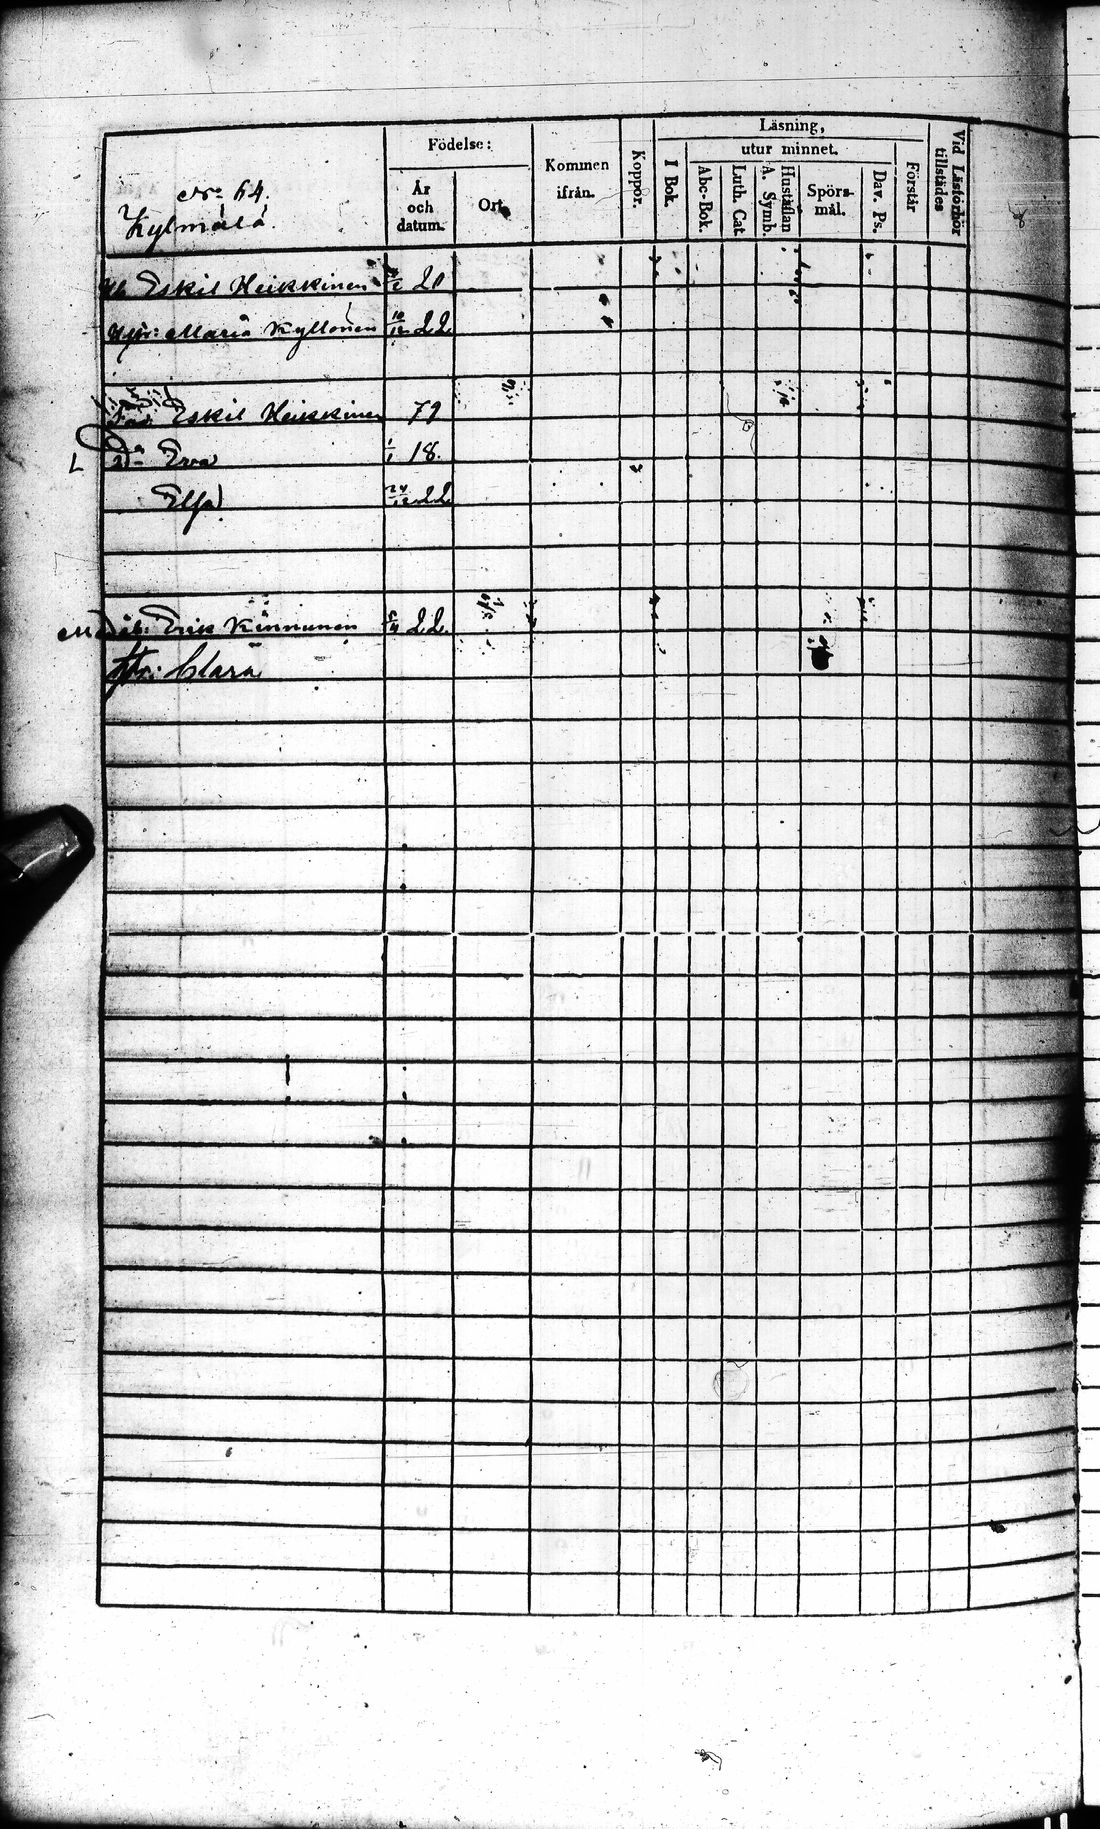 No 64.
Kylmälä.
Födelse:
År och datum.
Ort.
Kommen ifrån.
Koppor.
Läsning,
I Bok.
utur minnet.
Abc-Bok.
Luth. Cat.
Hustaflan A. Symb.
Spörsmål.
Dav. Ps.
Förstår
Vid Läsförhör tillstädes
Eskil Heikkinen
Hstr: Maria Kyllönen 10/12 22
Eskil Heikkinen 79
L Dr Eva 1/1 18.
Elsa 24/12 22
Erik Kinnunen 22.
Clara